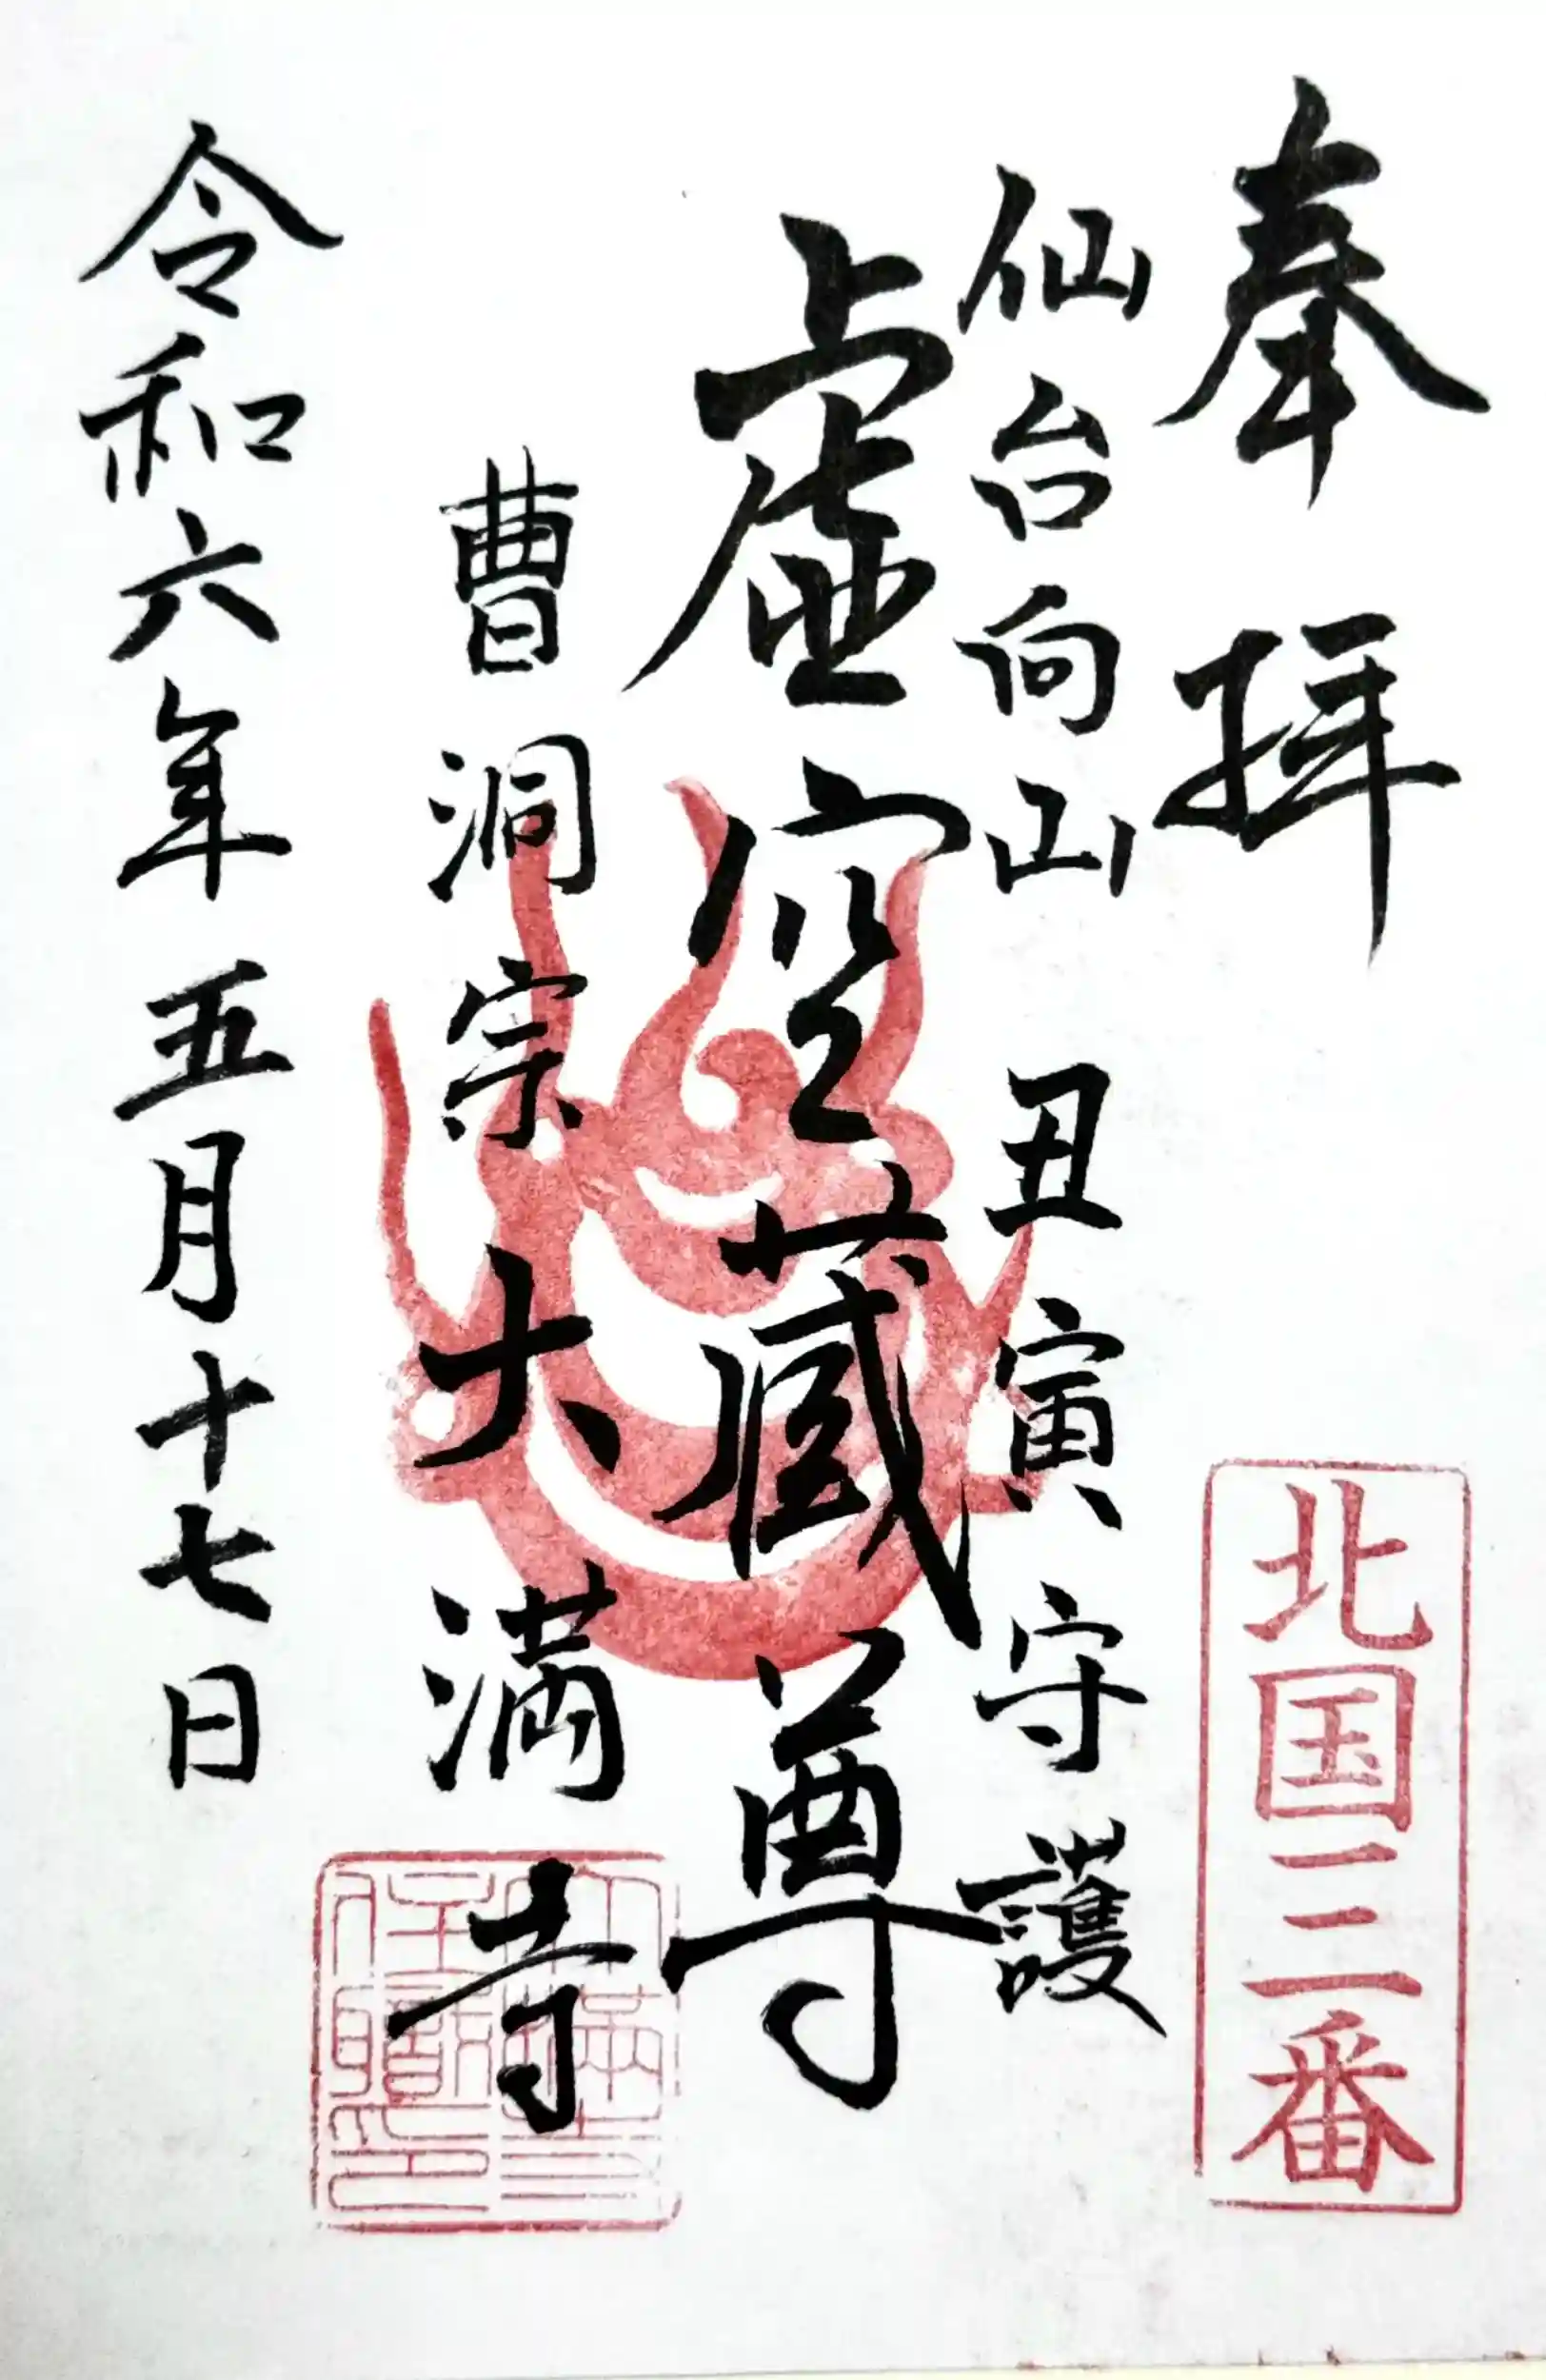 奉拝
北国三番
仙台向山 丑寅守護
虚空蔵尊
曹洞宗大満寺
令和六年五月十七日